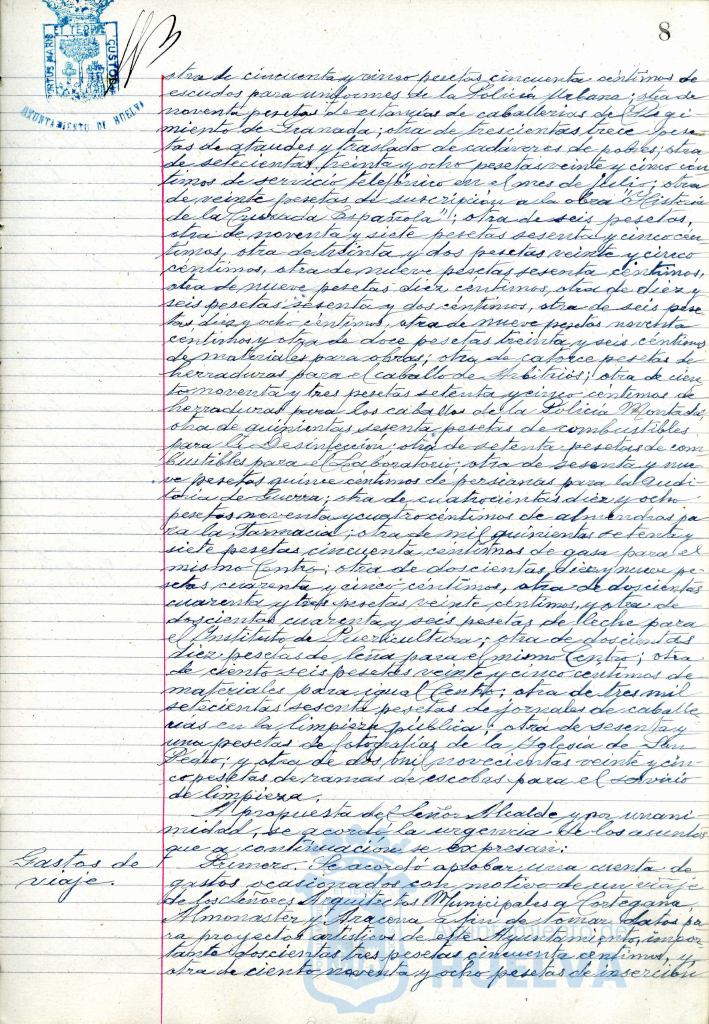 8
VIRTUS MARIS ET TERRÆ CUSTODIA
AYUNTAMIENTO DE HUELVA
otra de cincuenta y cinco pesetas cincuenta céntimos de
escudos para uniformes de la Policía Urbana; otra de
noventa pesetas de estancias de caballerías de Regi-
miento de Granada; otra de trescientas trece pese-
tas de ataudes y traslado de cadáveres de pobres; otra
de setecientas treinta y ocho pesetas veinte y cinco cén-
timos de servicio telefónico en el mes de Julio; otra
de veinte pesetas de suscripción a la obra "Historia
de la Cruzada Española"; otra de seis pesetas,
otra de noventa y siete pesetas sesenta y cinco cén-
timos, otra de treinta y dos pesetas veinte y cinco
céntimos, otra de nueve pesetas sesenta céntimos,
otra de nueve pesetas diez céntimos, otra de diez y
seis pesetas sesenta y dos céntimos, otra de seis pese-
tas diez y ocho céntimos, otra de nueve pesetas noventa
céntimos y otra de doce pesetas treinta y seis céntimos
de materiales para obras; otra de catorce pesetas de
herraduras para el caballo de Arbitrios; otra de cien-
to noventa y tres pesetas setenta y cinco céntimos de
herraduras para los caballos de la Policía Montada,
otra de quinientas sesenta pesetas de combustibles
para la Desinfección; otra de setenta pesetas de com-
bustibles para el Laboratorio; otra de sesenta y nue-
ve pesetas quince céntimos de persianas para la Audi-
toría de Guerra; otra de cuatrocientas diez y ocho
pesetas noventa y cuatro céntimos de almendras pa-
ra la Farmacia; otra de mil quinientas setenta y
siete pesetas cincuenta céntimos de gasa para el
mismo Centro; otra de doscientas diez y nueve pe-
setas cuarenta y cinco céntimos, otra de doscientas
cuarenta y tres pesetas veinte céntimos, y otra de
doscientas cuarenta y seis pesetas de leche para
el Instituto de Puericultura; otra de doscientas
diez pesetas de leña para el mismo Centro; otra
de ciento seis pesetas veinte y cinco céntimos de
materiales para igual Centro; otra de tres mil
setecientas sesenta pesetas de jornales de caballe-
rías en la limpieza pública; otra de sesenta y
una pesetas de fotografías de la Iglesia de San
Pedro; y otra de dos mil novecientas veinte y cin-
co pesetas de ramas de escobas para el servicio
de limpieza.
A propuesta del Señor Alcalde y por unani-
midad, se acordó la urgencia de los asuntos
que a continuación se expresan:
Gastos de
viaje.
Primero. Se acordó aprobar una cuenta de
gastos ocasionados con motivo de un viaje
de los Señores Arquitectos Municipales a Cortegana,
Almonaster y Aracena a fin de tomar datos pa-
ra proyectos artísticos de este Ayuntamiento, impor-
tante doscientas tres pesetas cincuenta céntimos, y
otra de ciento noventa y ocho pesetas de inserción
Ayuntamiento de
HUELVA